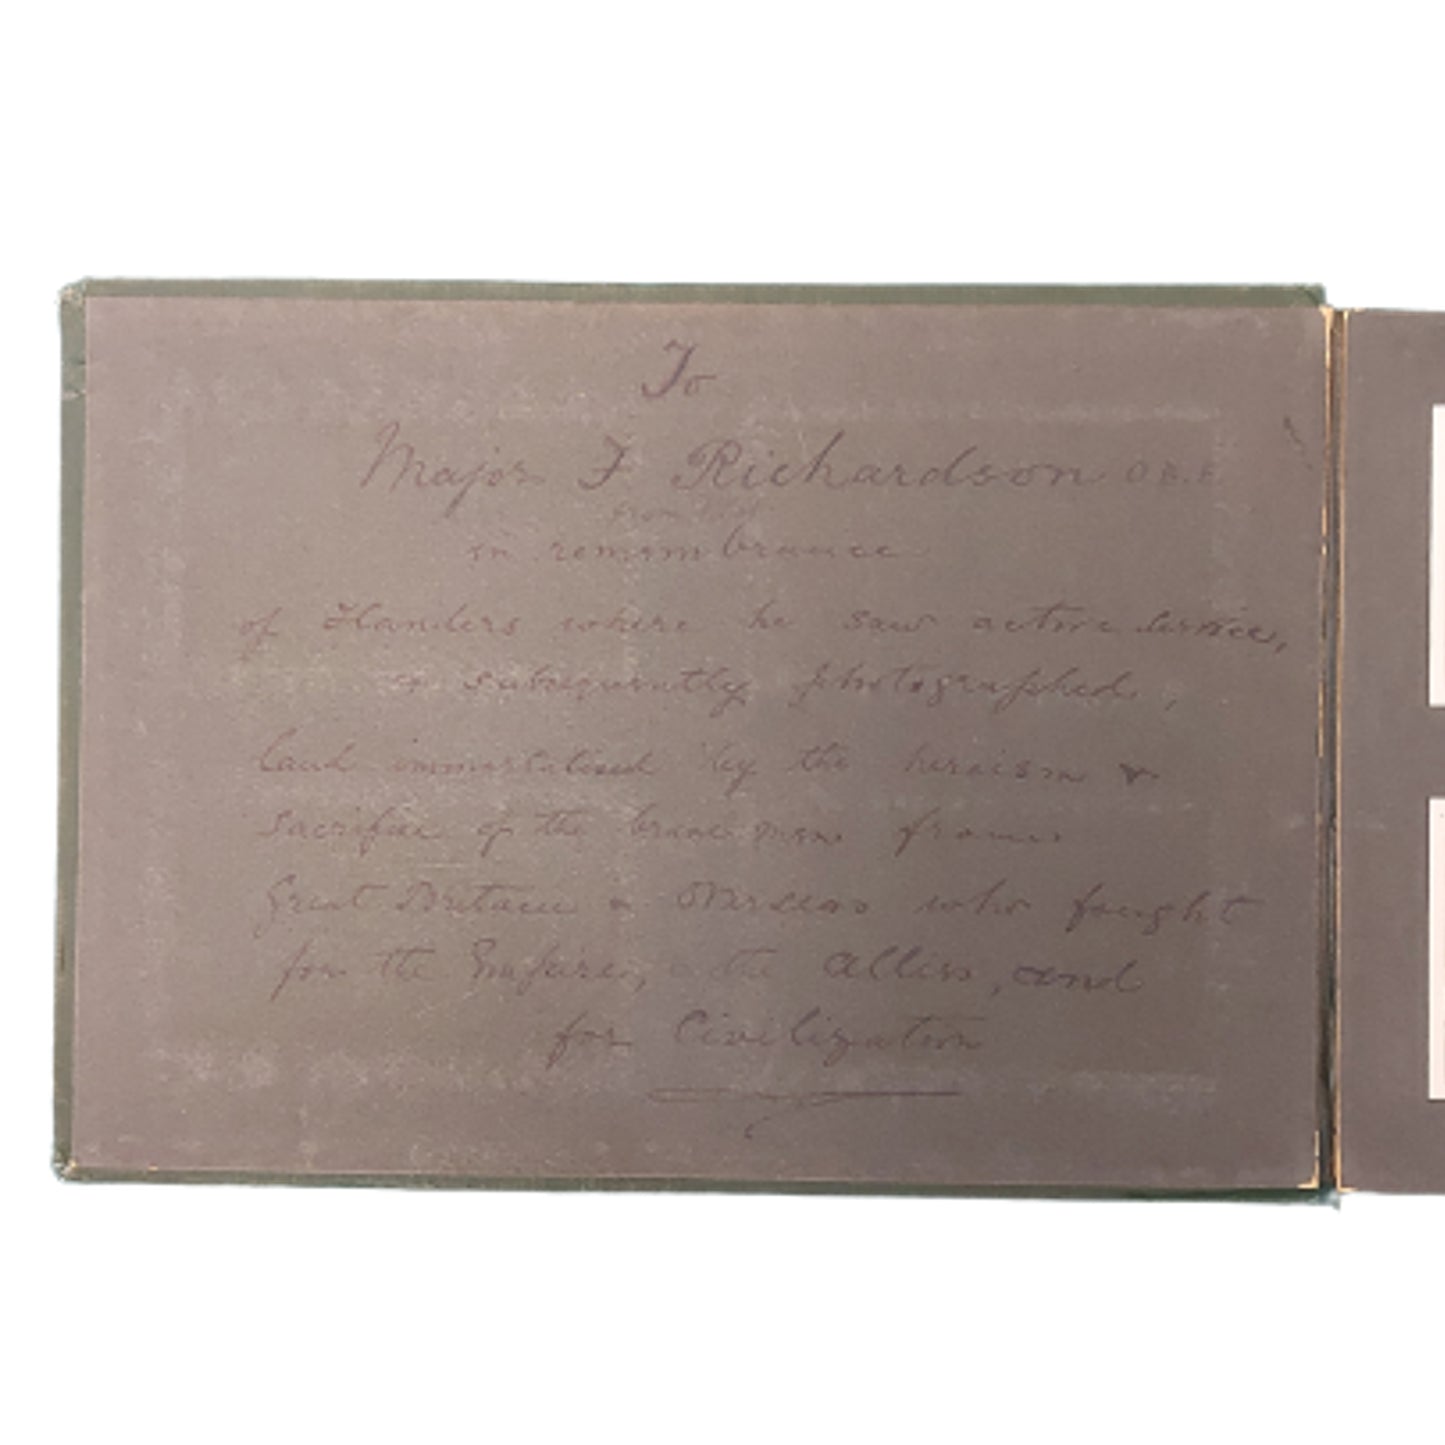 To
Major F Richardson O.B.E
from
in remembrance
of Flanders where he saw active service,
& subsequently photographed,
land immortalised by the heroism &
sacrifice of the brave men from
Great Britain & Overseas who fought
for the Empire, the Allies, and
for Civilization